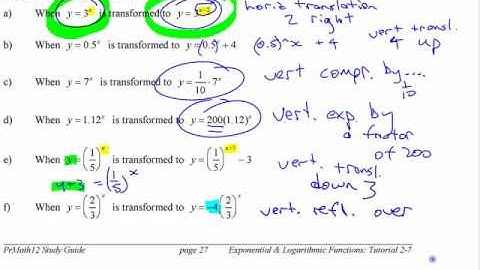 a) When y = 3ˣ is transformed to y = 3ˣ⁻² horiz translation
2 right
b) When y = 0.5ˣ is transformed to y = (0.5)ˣ + 4 (0.5)^x + 4 vert transl.
4 up
c) When y = 7ˣ is transformed to y = 1/10 · 7ˣ vert compr. by.... 1/10
d) When y = 1.12ˣ is transformed to y = 200(1.12)ˣ vert. exp. by
a factor
of 200
e) When y = (1/5)ˣ is transformed to y = (1/5) − 3 vert. transl.
y+3 = (1/5)ˣ down 3
f) When y = (2/3)ˣ is transformed to y = −4(2/3)ˣ vert. refl. over
PrMath12 Study Guide page 27 Exponential & Logarithmic Functions: Tutorial 2-7